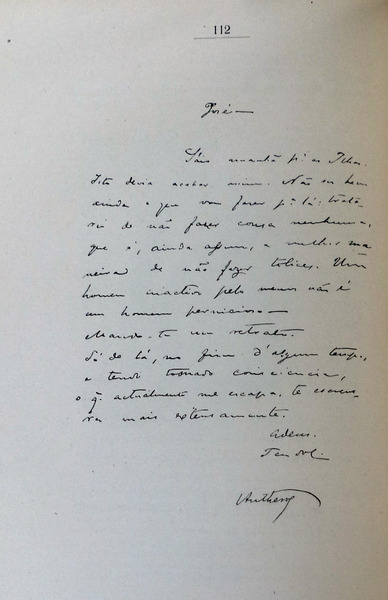 112
José —
Sáio amanhã p.ª as Ilhas.
Isto devia acabar assim. Não sei bem
ainda o que vou fazer p.ª lá: tratarei
de não fazer cousa nenhuma,
que é, ainda assim, a melhor ma
neira de não fazer tolices. Um
homem inactivo pelo menos não é
um homem pernicioso —
Mando-te um retrato.
Só de lá, no fim d'algum tempo,
e tendo tomado consciencia,
o q. actualmente me escapa, te escreve
rei mais extensamente.
Adeus.
Teu do C.
Anthero